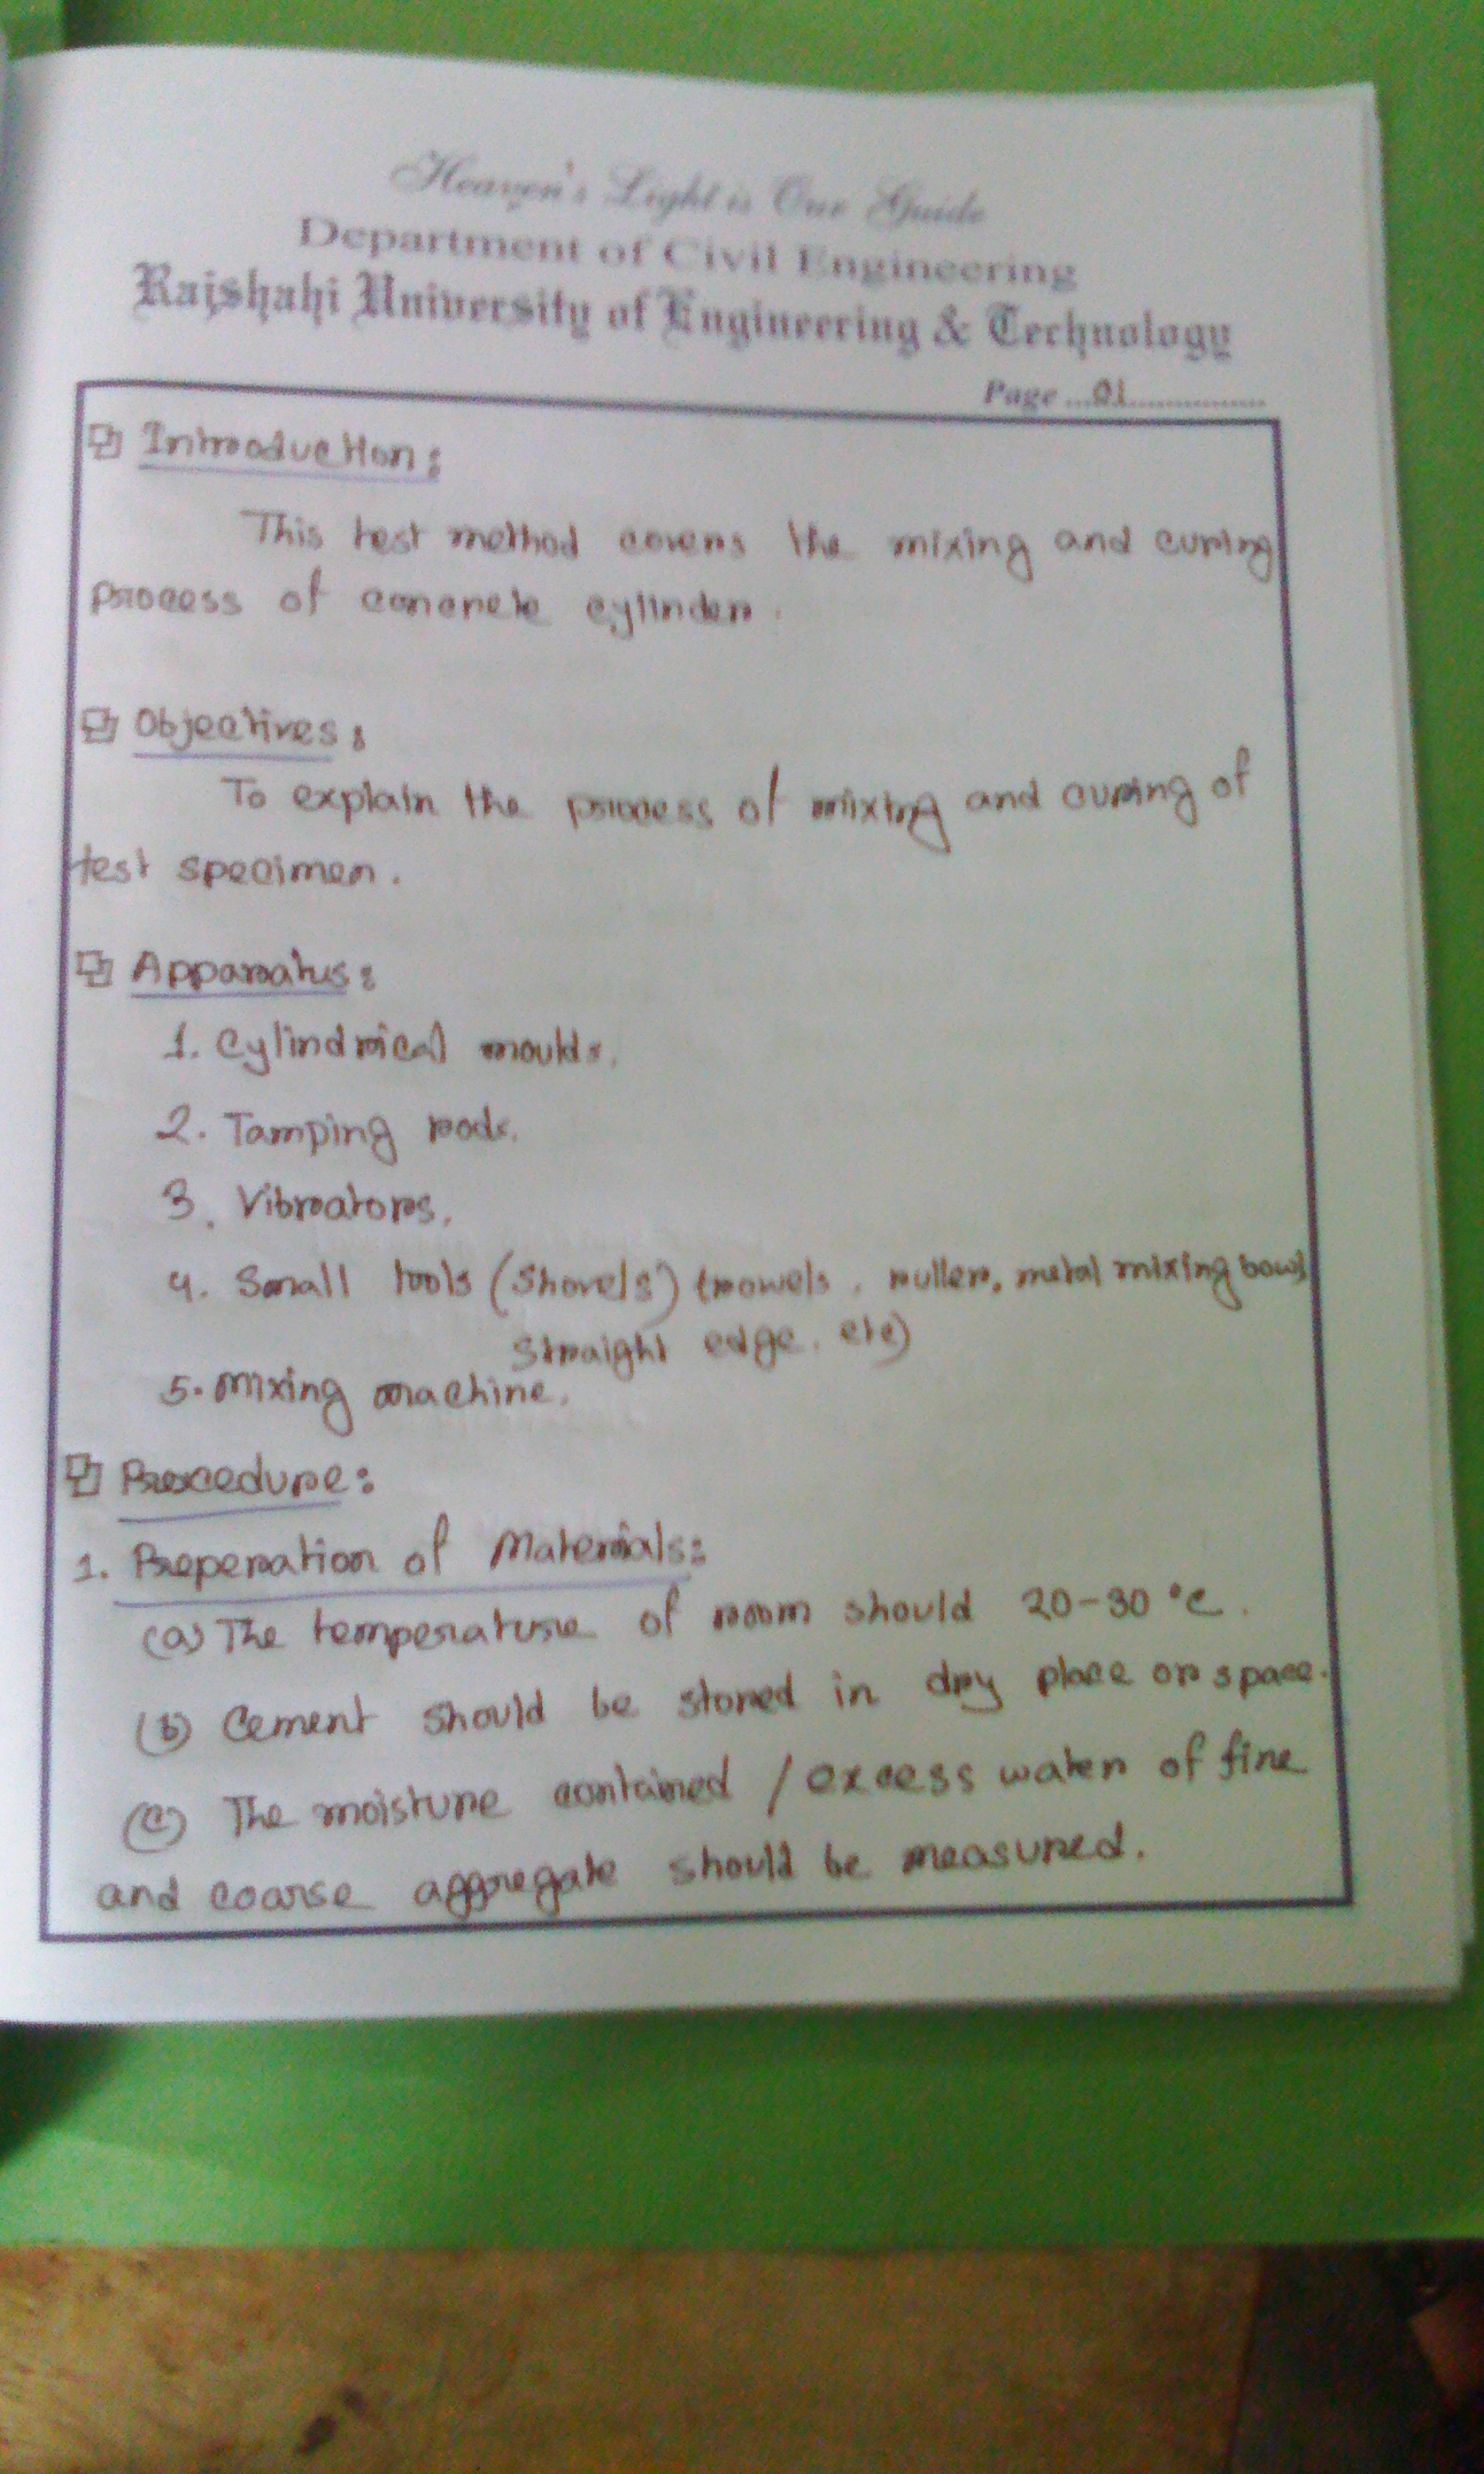 Heaven's Light is Our Guide
Department of Civil Engineering
Rajshahi University of Engineering & Technology
Page ...01...............
Introduction:
This test method covers the mixing and curing
process of concrete cylinder.
Objectives:
To explain the process of mixing and curing of
test specimen.
Apparatus:
1. Cylindrical moulds.
2. Tamping rods.
3. Vibrators.
4. Small tools (Shovels') trowels, ruller, metal mixing bowl
straight edge. etc)
5. Mixing machine.
Procedure:
1. Preperation of Materials:
(a) The temperature of room should 20-30 °C.
(b) Cement should be stored in dry place or space.
(c) The moisture contained / excess water of fine
and coarse aggregate should be measured.